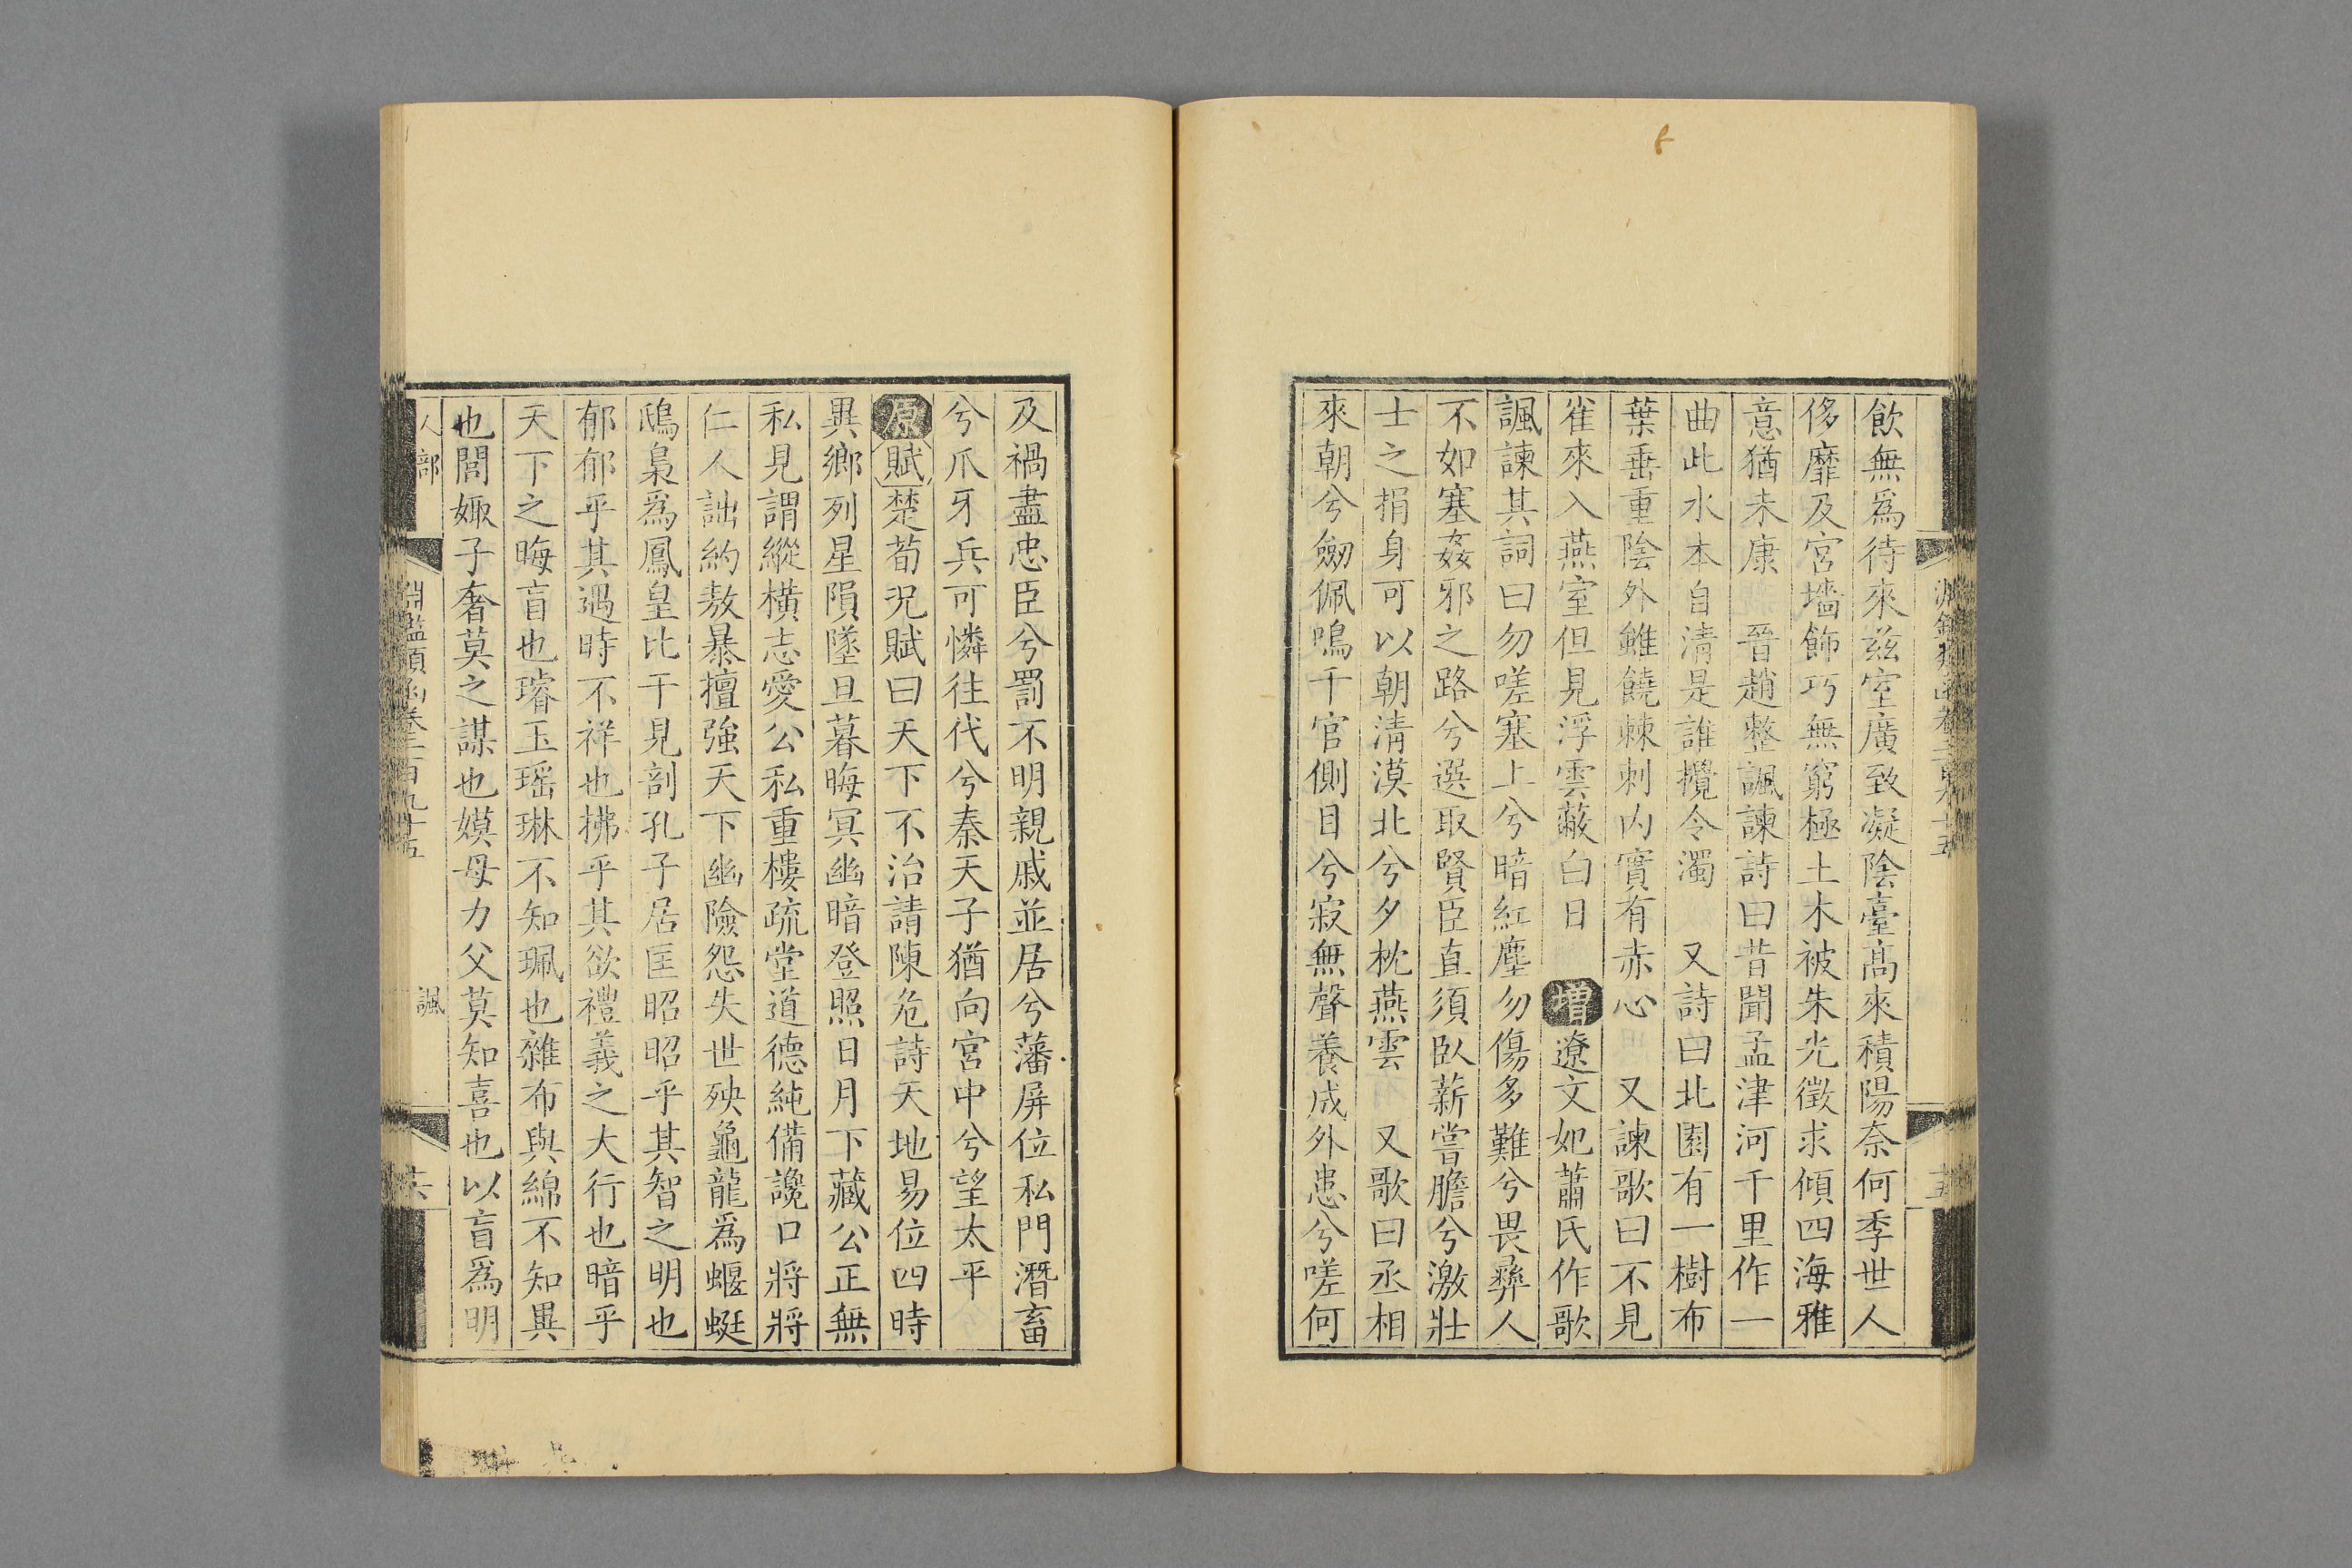 飲無爲待來兹室廣致凝陰臺髙來積陽奈何季世人
侈靡及宮墻飾巧無窮極土木被朱光徵求傾四海雅
意猶未康　晉趙整諷諫詩曰昔聞孟津河千里作一
曲此水本自清是誰攪令濁　又詩曰北園有一樹布
葉垂重陰外雖饒棘刺内實有赤心　又諫歌曰不見
雀來入燕室但見浮雲蔽白日　增遼文妃蕭氏作歌
諷諫其詞曰勿嗟塞上兮暗紅塵勿傷多難兮畏彝人
不如塞姦邪之路兮選取賢臣直須臥薪嘗膽兮激壯
士之捐身可以朝清漠北兮夕枕燕雲　又歌曰丞相
來朝兮劒佩鳴千官側目兮寂無聲養成外患兮嗟何
及禍盡忠臣兮罰不明親戚並居兮藩屏位私門潛畜
兮爪牙兵可憐往代兮秦天子猶向宮中兮望太平
原賦楚荀況賦曰天下不治請陳危詩天地易位四時
異鄉列星隕墜旦暮晦冥幽暗登照日月下藏公正無
私見謂縱橫志愛公私重樓疏堂道德純備讒口將將
仁人詘約敖暴擅強天下幽險怨失世殃龜龍爲蝘蜓
鴟梟爲鳳皇比干見剖孔子居匡昭昭乎其智之明也
郁郁乎其遇時不祥也拂乎其欲禮義之大行也暗乎
天下之晦盲也璿玉瑶琳不知珮也雜布與綿不知異
也閭娵子奢莫之謀也嫫母力父莫知喜也以盲爲明
人部
淵鑑類函卷二百九十五
諷